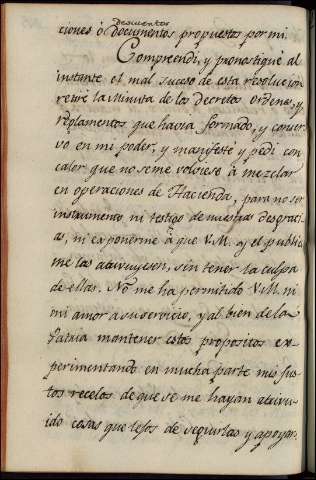 Descuentos
ciones ó documentos propuestos por mi.
Comprendi, y pronostiqué al
instante el mal suceso de esta resolucion
retiré la Minuta de los Decretos ordenes, y
reglamentos que havia formado, y conser
vo en mi poder, y manifesté y pedi con
calor que no se me volviese à mezclar
en operaciones de Hacienda, para no ser
instrumento ni testigo de nuestras desgraci
as, ni exponerme à que V.M. y el publico
me las atribuyesen, sin tener la culpa
de ellas. No me ha permitido V.M. ni
mi amor a su servicio, y al bien de la
Patria mantener estos propositos ex
perimentando en mucha parte mis jus
tos recelos de que se me hayan atribu
ido cosas que lejos de seguirlas y apoyar